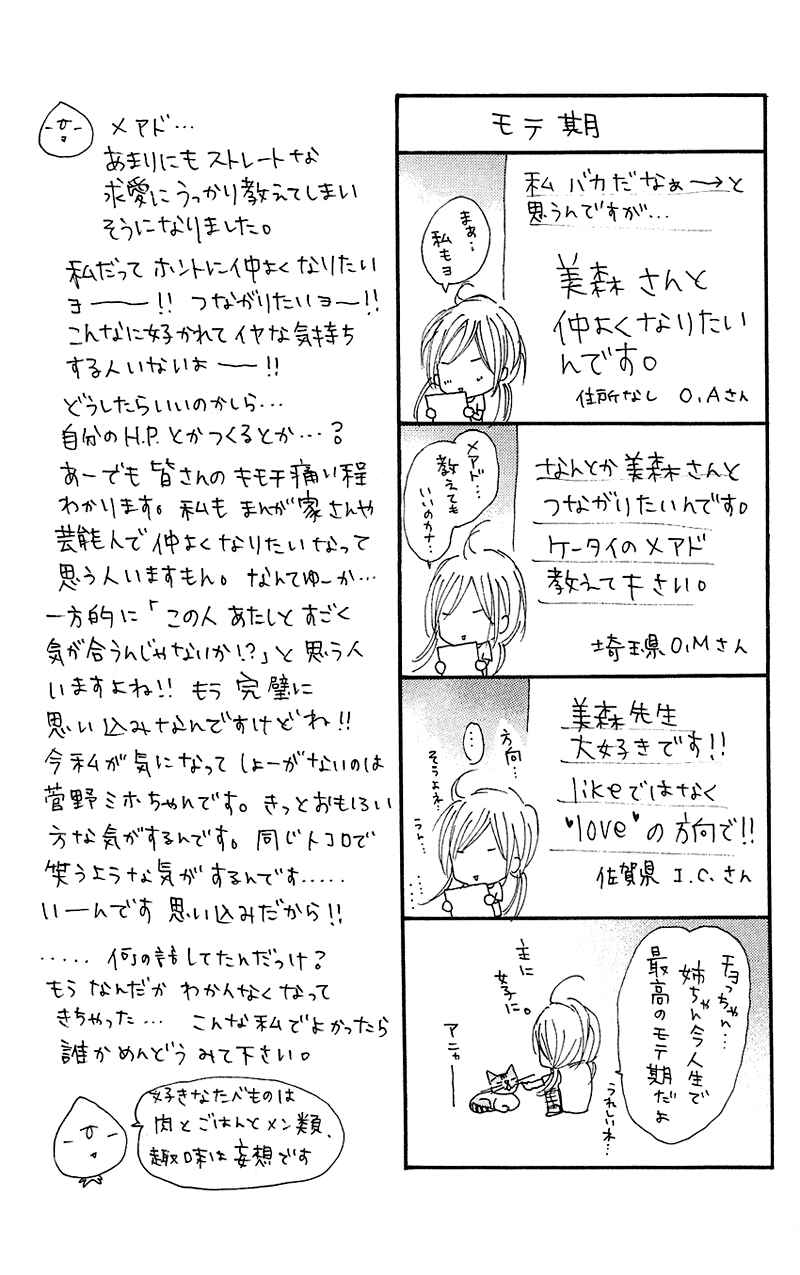 モテ期
私 バカだなぁー→と
思うんですが…
美森さんと
仲よくなりたい
んです。
住所なし O.Aさん
まぁ…
私もョ
なんとか美森さんと
つながりたいんです。
ケータイのメアド
教えて下さい。
埼玉県O.Mさん
メアド…
教えても
いいのカナ…
美森先生
大好きです!!
likeではなく
"love"の方向で!!
佐賀県 I.C.さん
方向…
…
そうよネ…
うん…
……
チョっちゃん…
姉ちゃん今人生で
最高のモテ期だよ
うれしいネ…
主に
女子に。
アニャーー
メアド…
あまりにもストレートな
求愛にうっかり教えてしまい
そうになりました。
私だって ホントに仲よくなりたい
ョーー!! つながりたいョー!!
こんなに好かれてイヤな気持ち
する人いないよーー!!
どうしたらいいのかしら…
自分のH.P.とかつくるとか…?
あーでも 皆さんのキモチ痛い程
わかります。私も まんが家さんや
芸能人で仲よくなりたいなって
思う人いますもん。なんてゆーか…
一方的に「この人 あたしとすごく
気が合うんじゃないか!?」と思う人
いますよね!! もう 完璧に
思い込みなんですけどね!!
今私が気になってしょーがないのは
菅野ミホちゃんです。きっとおもしろい
方な気がするんです。同じトコロで
笑うような気がするんです.....
いーんです 思い込みだから!!
..... 何の話してたんだっけ?
もう なんだか わかんなくなって
きちゃった... こんな私でよかったら
誰かめんどうみて下さい。
好きなたべものは
肉とごはんとメン類、
趣味は妄想です